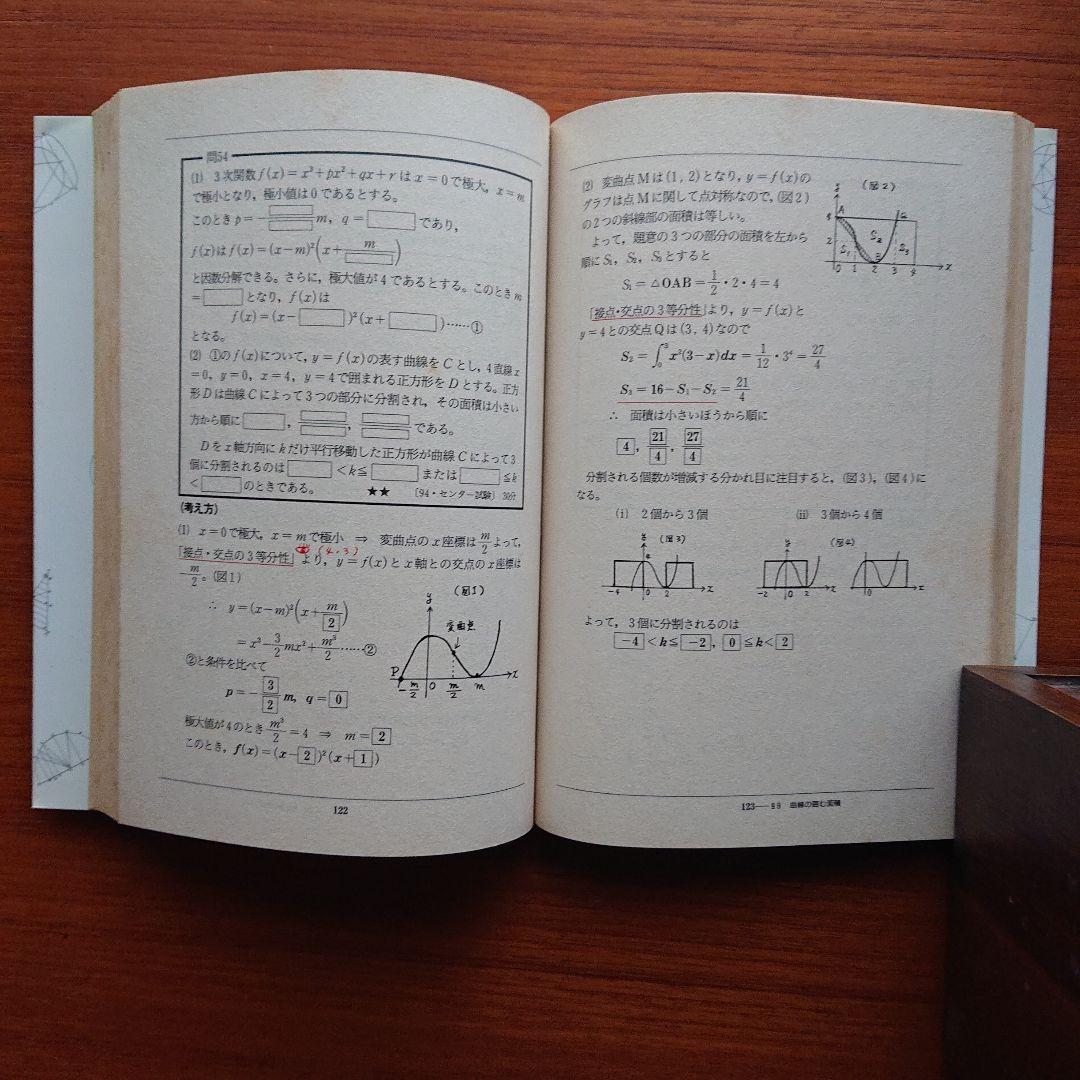 問54
(1) 3次関数 f(x)=x³+px²+qx+r は x=0で極大, x=m
で極小となり, 極小値は0であるとする。
このとき p=-□/□ m, q=□ であり,
f(x)は f(x)=(x-m)²(x+m/□)
と因数分解できる。さらに, 極大値が4であるとする。このとき m
=□ となり, f(x)は
f(x)=(x-□)²(x+□)……①
となる。
(2) ①のf(x)について, y=f(x)の表す曲線をCとし, 4直線x
=0, y=0, x=4, y=4で囲まれる正方形をDとする。正方
形Dは曲線Cによって3つの部分に分割され, その面積は小さい
方から順に □, □/□, □/□ である。
Dをx軸方向にkだけ平行移動した正方形が曲線Cによって3
個に分割されるのは □<k≦□ または □≦k
<□ のときである。 ★★ 〔94・センター試験〕 30分
(考え方)
(1) x=0で極大, x=mで極小 ⇒ 変曲点のx座標は m/2 よって,
(4.3)
「接点・交点の3等分性」より, y=f(x)とx軸との交点のx座標は
-m/2。(図1)
∴ y=(x-m)²(x+m/2)
=x³-3/2mx²+m³/2……②
②と条件を比べて
p=-3/2 m, q=0
極大値が4のとき m³/2=4 ⇒ m=2
このとき, f(x)=(x-2)²(x+1)
(図1)
y
変曲点
P
-m/2 0 m/2 m x
122
(2) 変曲点Mは(1, 2)となり, y=f(x)の
グラフは点Mに関して点対称なので, (図2)
の2つの斜線部の面積は等しい。
よって, 題意の3つの部分の面積を左から
順にS₁, S₂, S₃とすると
S₁=△OAB=1/2・2・4=4
「接点・交点の3等分性」より, y=f(x)と
y=4との交点Qは(3, 4)なので
S₂=∫₀³x²(3-x)dx=1/12・3⁴=27/4
S₃=16-S₁-S₂=21/4
∴ 面積は小さいほうから順に
4, 21/4, 27/4
(図2)
y
4 A Q
2 S₁ S₂ S₃
B
0 1 2 3 4 x
分割される個数が増減する分かれ目に注目すると, (図3), (図4)に
なる。
(i) 2個から3個 (ii) 3個から4個
(図3) (図4)
y
-4 0 2 x
y
-2 0 2 x
0 x
よって, 3個に分割されるのは
-4<k≦-2, 0≦k<2
123──§9 曲線の囲む面積